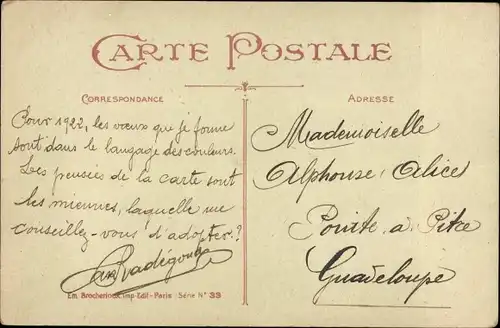 CARTE POSTALE
CORRESPONDANCE
Pour 1922, les vœux que je forme
sont dans le langage des couleurs.
Les pensées de la carte sont
les miennes, laquelle me
conseillez-vous d'adopter?
Radégonde
Em. Brocherioux, Imp-Edit-Paris Série N° 33
ADRESSE
Mademoiselle
Alphonse Alice
Pointe à Pitre
Guadeloupe